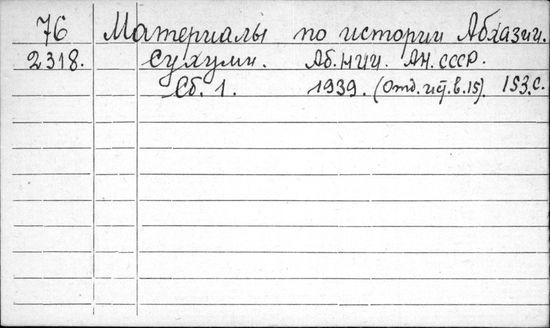 76 Материалы по истории Абхазии.
2318. Сухуми. Аб.НИИ. АН.СССР.
Сб. 1. 1939. (Отд. ист. в.15). 153.с.